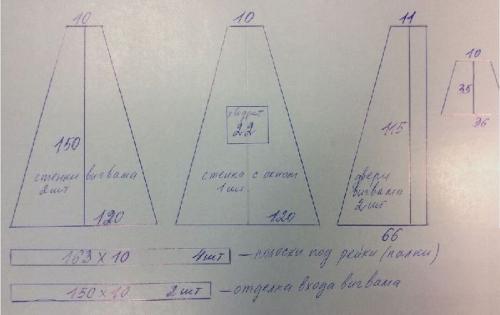 10
150
стенки вигвама
2шт
120
10
квадрат
22
стенка с окном
1шт
120
11
115
двери
вигвама
2шт
66
10
35
36
163 x 10 4шт – полоски под рейки (палки)
150 x 10 2шт – отделка входа вигвама